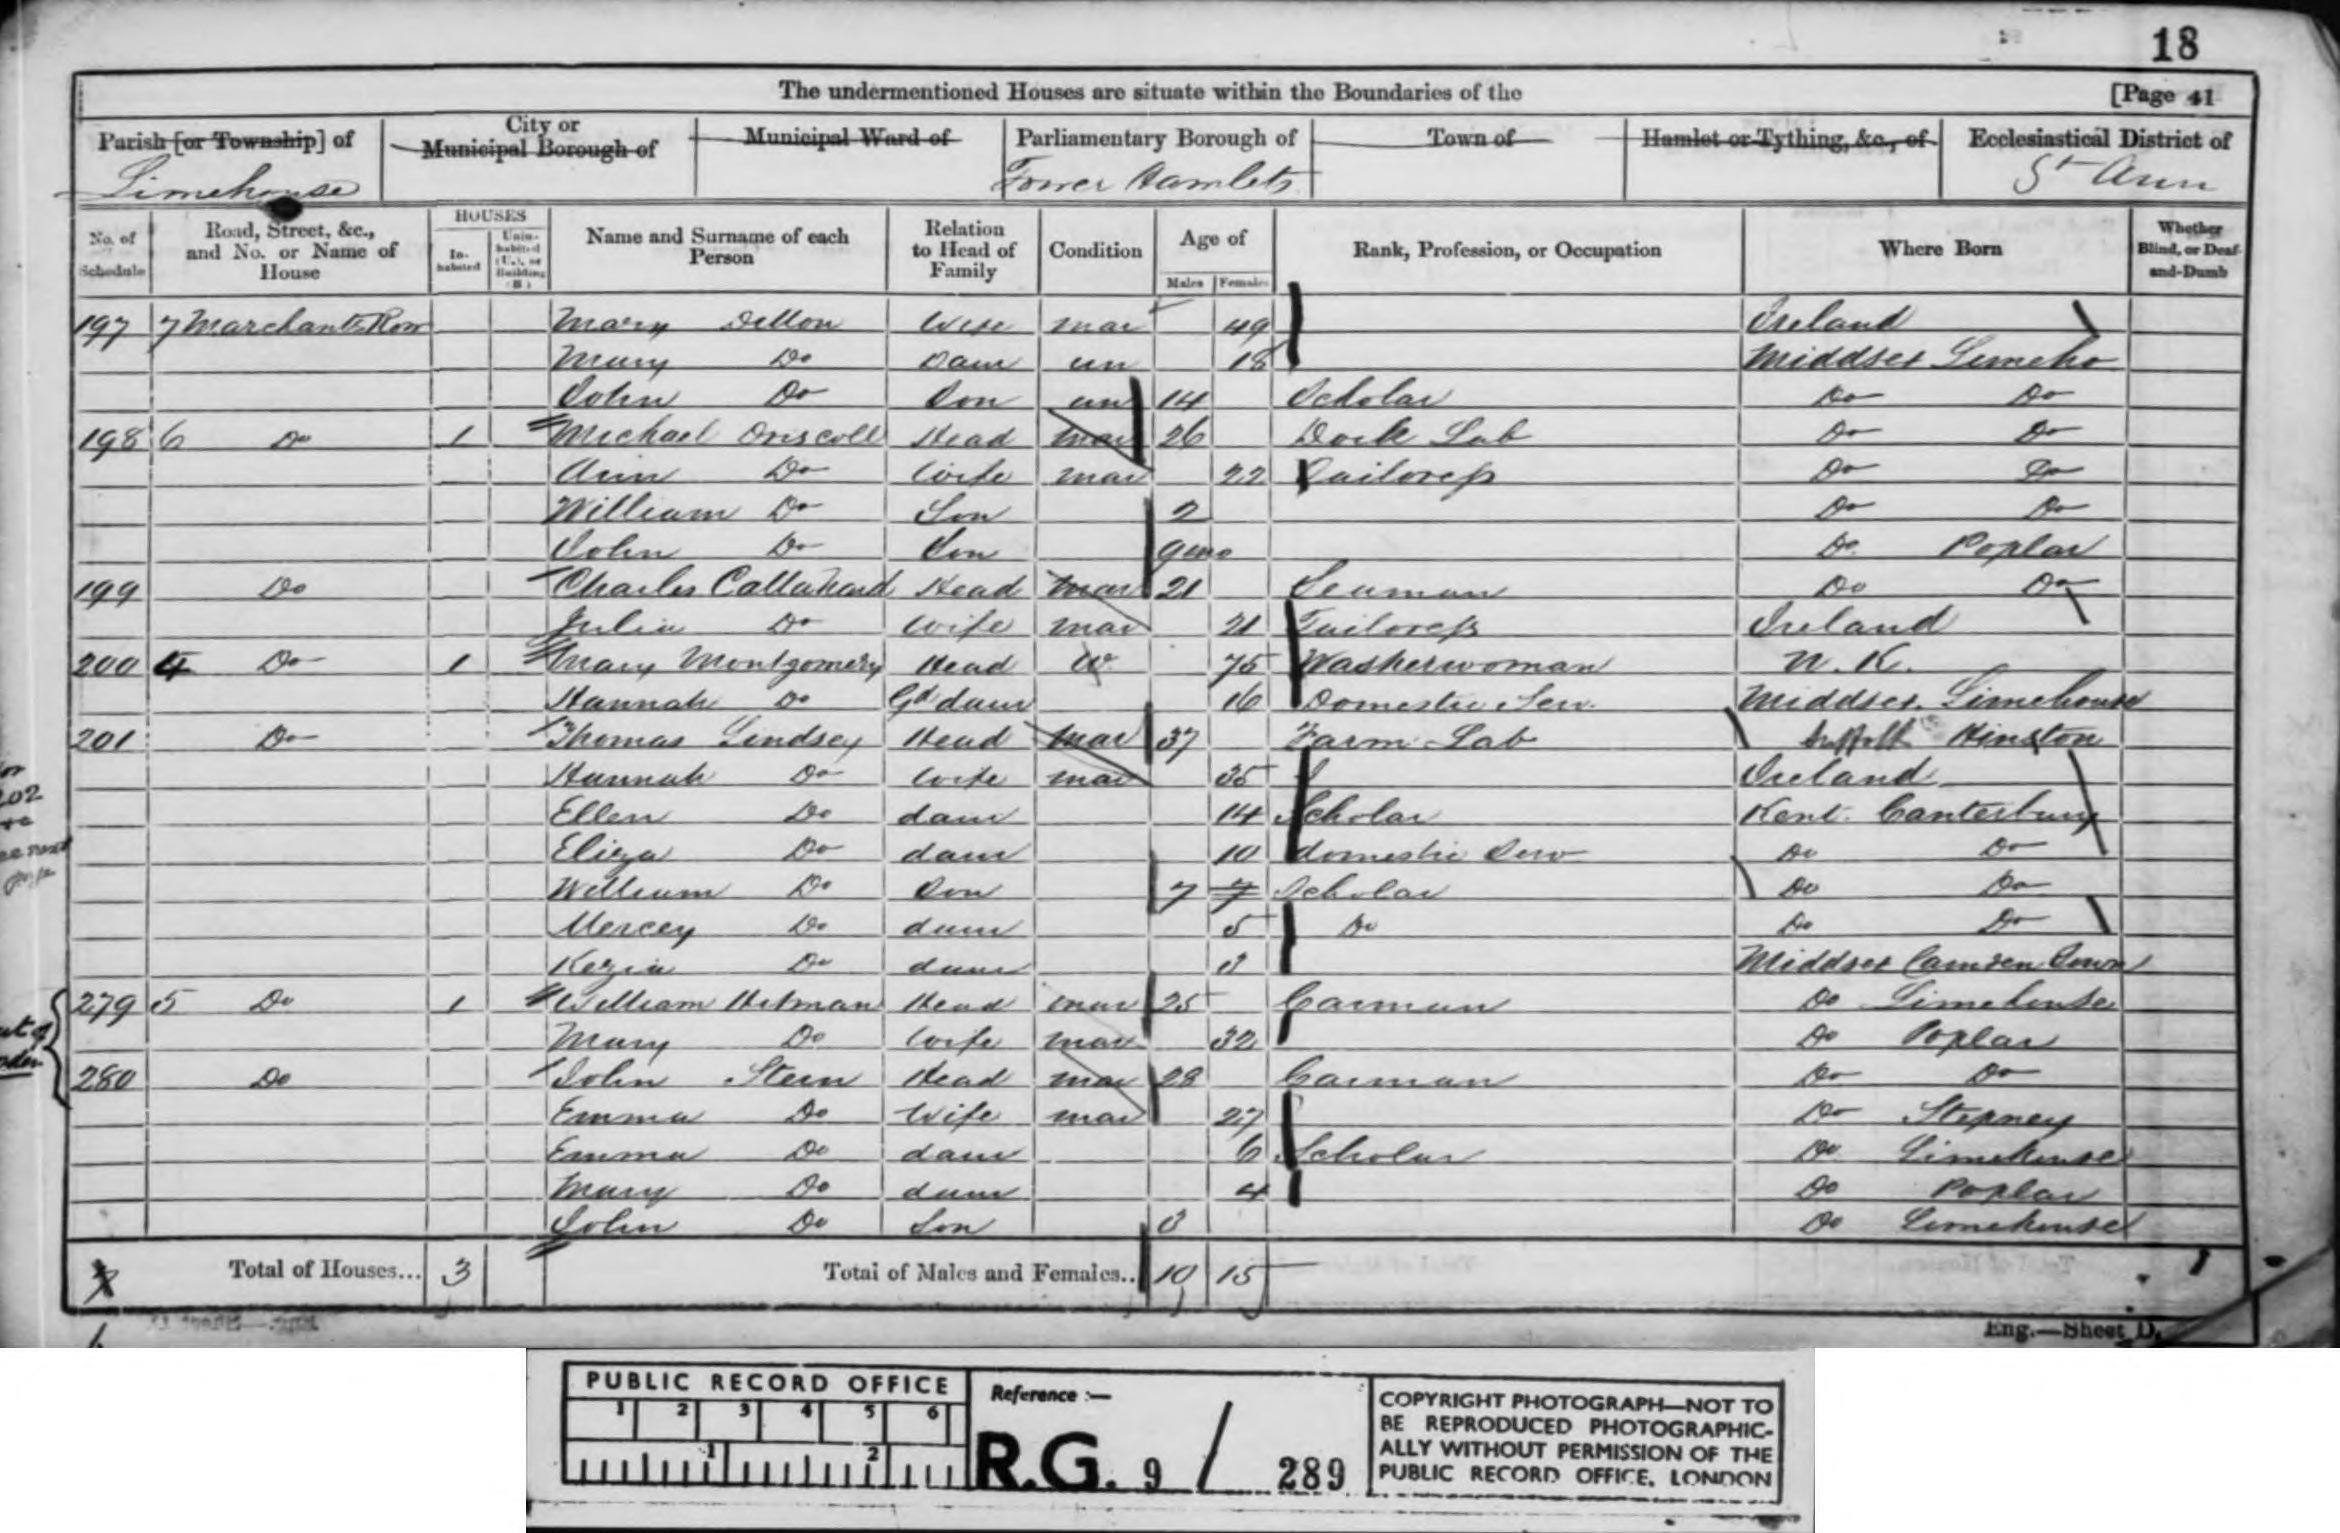 18
The undermentioned Houses are situate within the Boundaries of the [Page 41
Parish [or Township] of City or Municipal Borough of Municipal Ward of Parliamentary Borough of Town of Hamlet or Tything, &c., of Ecclesiastical District of
Limehouse Tower Hamlets St Ann
No. of Schedule Road, Street, &c., and No. or Name of House HOUSES Inhabited Uninhabited (U.), or Building (B.) Name and Surname of each Person Relation to Head of Family Condition Age of Males Females Rank, Profession, or Occupation Where Born Whether Blind, or Deaf-and-Dumb
197 7 Marchants Row Mary Dillon Wife mar 49 Ireland
Mary Do Daur un 18 Middsex Limeho
John Do Son un 14 Scholar Do Do
198 6 Do 1 Michael Driscoll Head mar 26 Dock Lab Do Do
Ann Do Wife mar 22 Tailoress Do Do
William Do Son 2 Do Do
John Do Son 9mo Do Poplar
199 Do Charles Callahand Head mar 21 Seaman Do Do
Julia Do Wife mar 21 Tailoress Ireland
200 4 Do 1 Mary Montgomery Head W 75 Washerwoman N. K.
Hannah Do Gd daur 16 Domestic Serv. Middsex. Limehouse
201 Do Thomas Lindsey Head mar 37 Farm Lab Suffolk Hinston
Hannah Do Wife mar 35 Ireland
Ellen Do daur 14 Scholar Kent. Canterbury
Eliza Do daur 10 domestic Serv Do Do
William Do Son 7 7 Scholar Do Do
Mercey Do daur 5 Do Do Do
Kezia Do daur 3 Middsex Camden Town
279 5 Do 1 William Hitman Head mar 25 Carman Do Limehouse
Mary Do Wife mar 32 Do Poplar
280 Do John Stern Head mar 28 Carman Do Do
Emma Do Wife mar 27 Do Stepney
Emma Do daur 6 Scholar Do Limehouse
Mary Do daur 4 Do Poplar
John Do Son 3 Do Limehouse
Total of Houses... 3 Total of Males and Females.. 10 15
Eng.—Sheet D.
PUBLIC RECORD OFFICE
1 2 3 4 5 6
1 2
Reference :—
R.G. 9 / 289
COPYRIGHT PHOTOGRAPH—NOT TO
BE REPRODUCED PHOTOGRAPHIC-
ALLY WITHOUT PERMISSION OF THE
PUBLIC RECORD OFFICE, LONDON